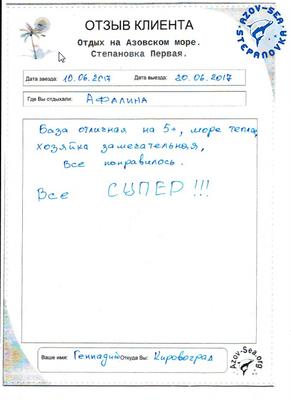 ОТЗЫВ КЛИЕНТА
Отдых на Азовском море.
Степановка Первая.
AZOV-SEA
STEPANOVKA
Дата заезда: 10.06.2017 Дата выезда: 20.06.2017
Где Вы отдыхали: АФАЛИНА
База отличная на 5+, море тепла,
хозяйка замечательная,
все понравилось.
Все СУПЕР!!!
Ваше имя: Геннадий Откуда Вы: Кировоград
Azov-Sea.org